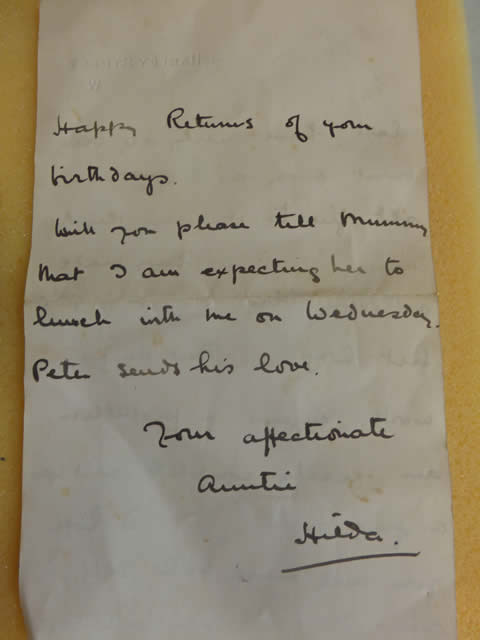 Happy Returns of your
birthdays.
Will you please tell Mummy
that I am expecting her to
lunch with me on Wednesday.
Peter sends his love.
Your affectionate
Auntie
Hilda.